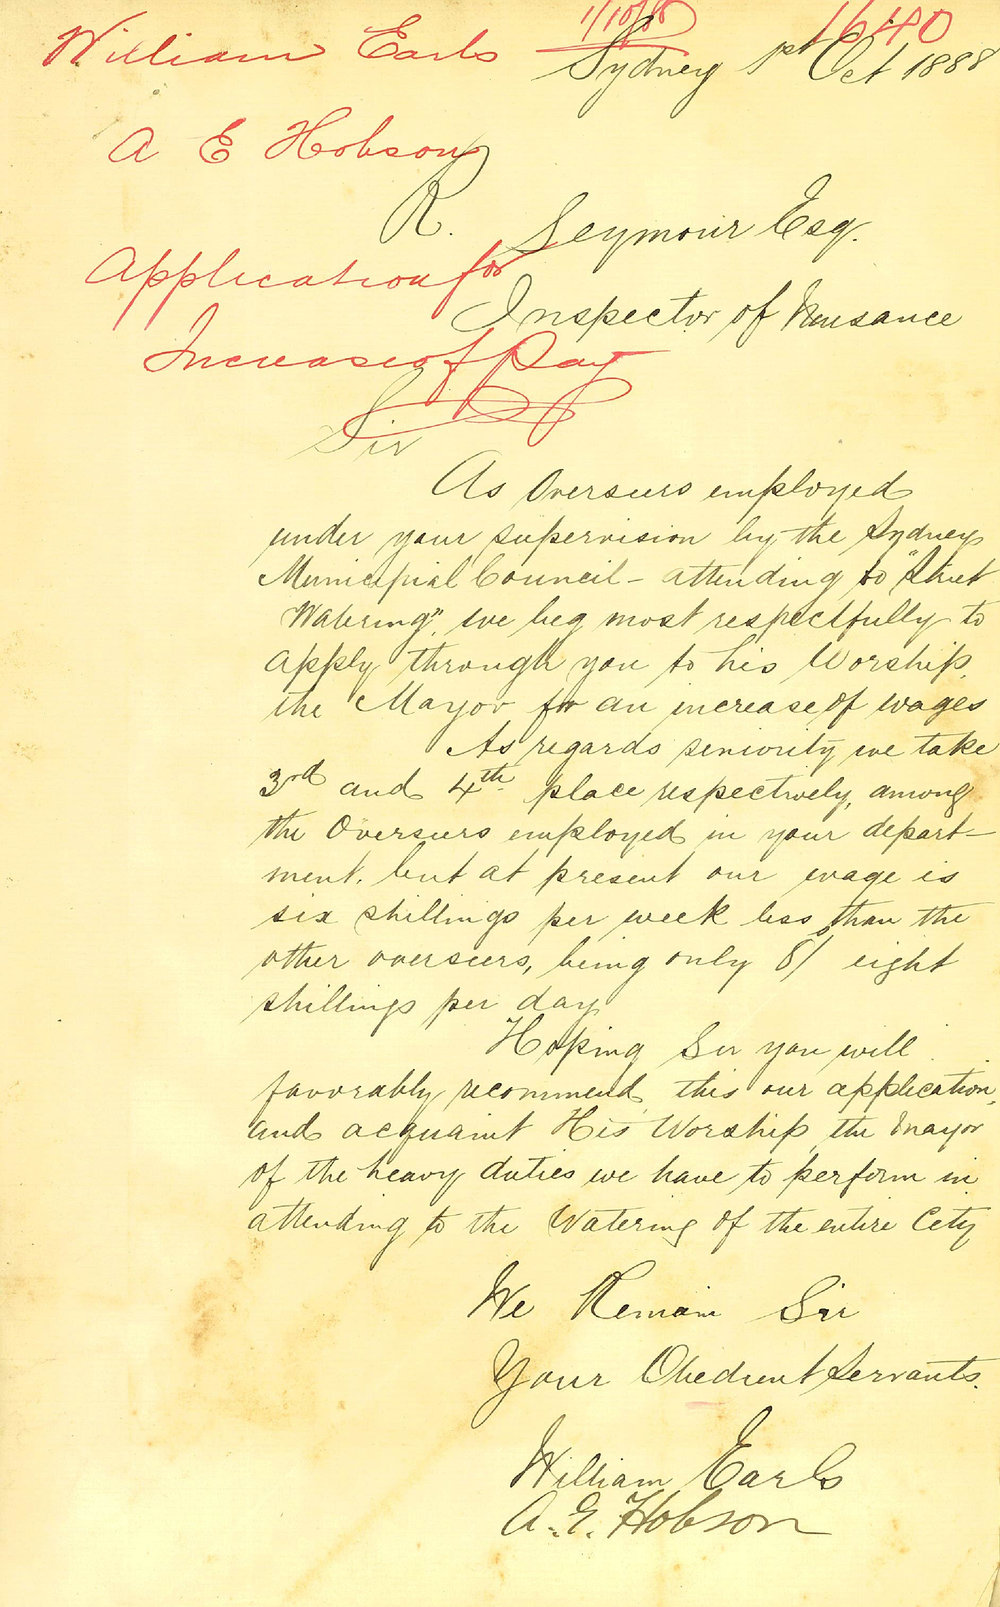 1/10/88 1640
William Earls
Sydney 1st Oct 1888
A E Hobson
R. Seymour Esq.
Application for
Inspector of Nuisance
Increase of Pay
Sir
As Overseers employed
under your supervision by the Sydney
Municipial Council - attending to "Street
Watering", we beg most respectfully to
apply through you to his Worship,
the Mayor for an increase of wages
As regards seniority we take
3rd and 4th place respectively, among
the Overseers employed in your depart-
ment. but at present our wage is
six shillings per week less than the
other overseers, being only 8/ eight
shillings per day
Hoping Sir you will
favorably recommend this our application,
and acquaint His Worship the Mayor
of the heavy duties we have to perform in
attending to the Watering of the entire City
We Remain Sir
Your Obedient Servants.
William Earls
A. E. Hobson